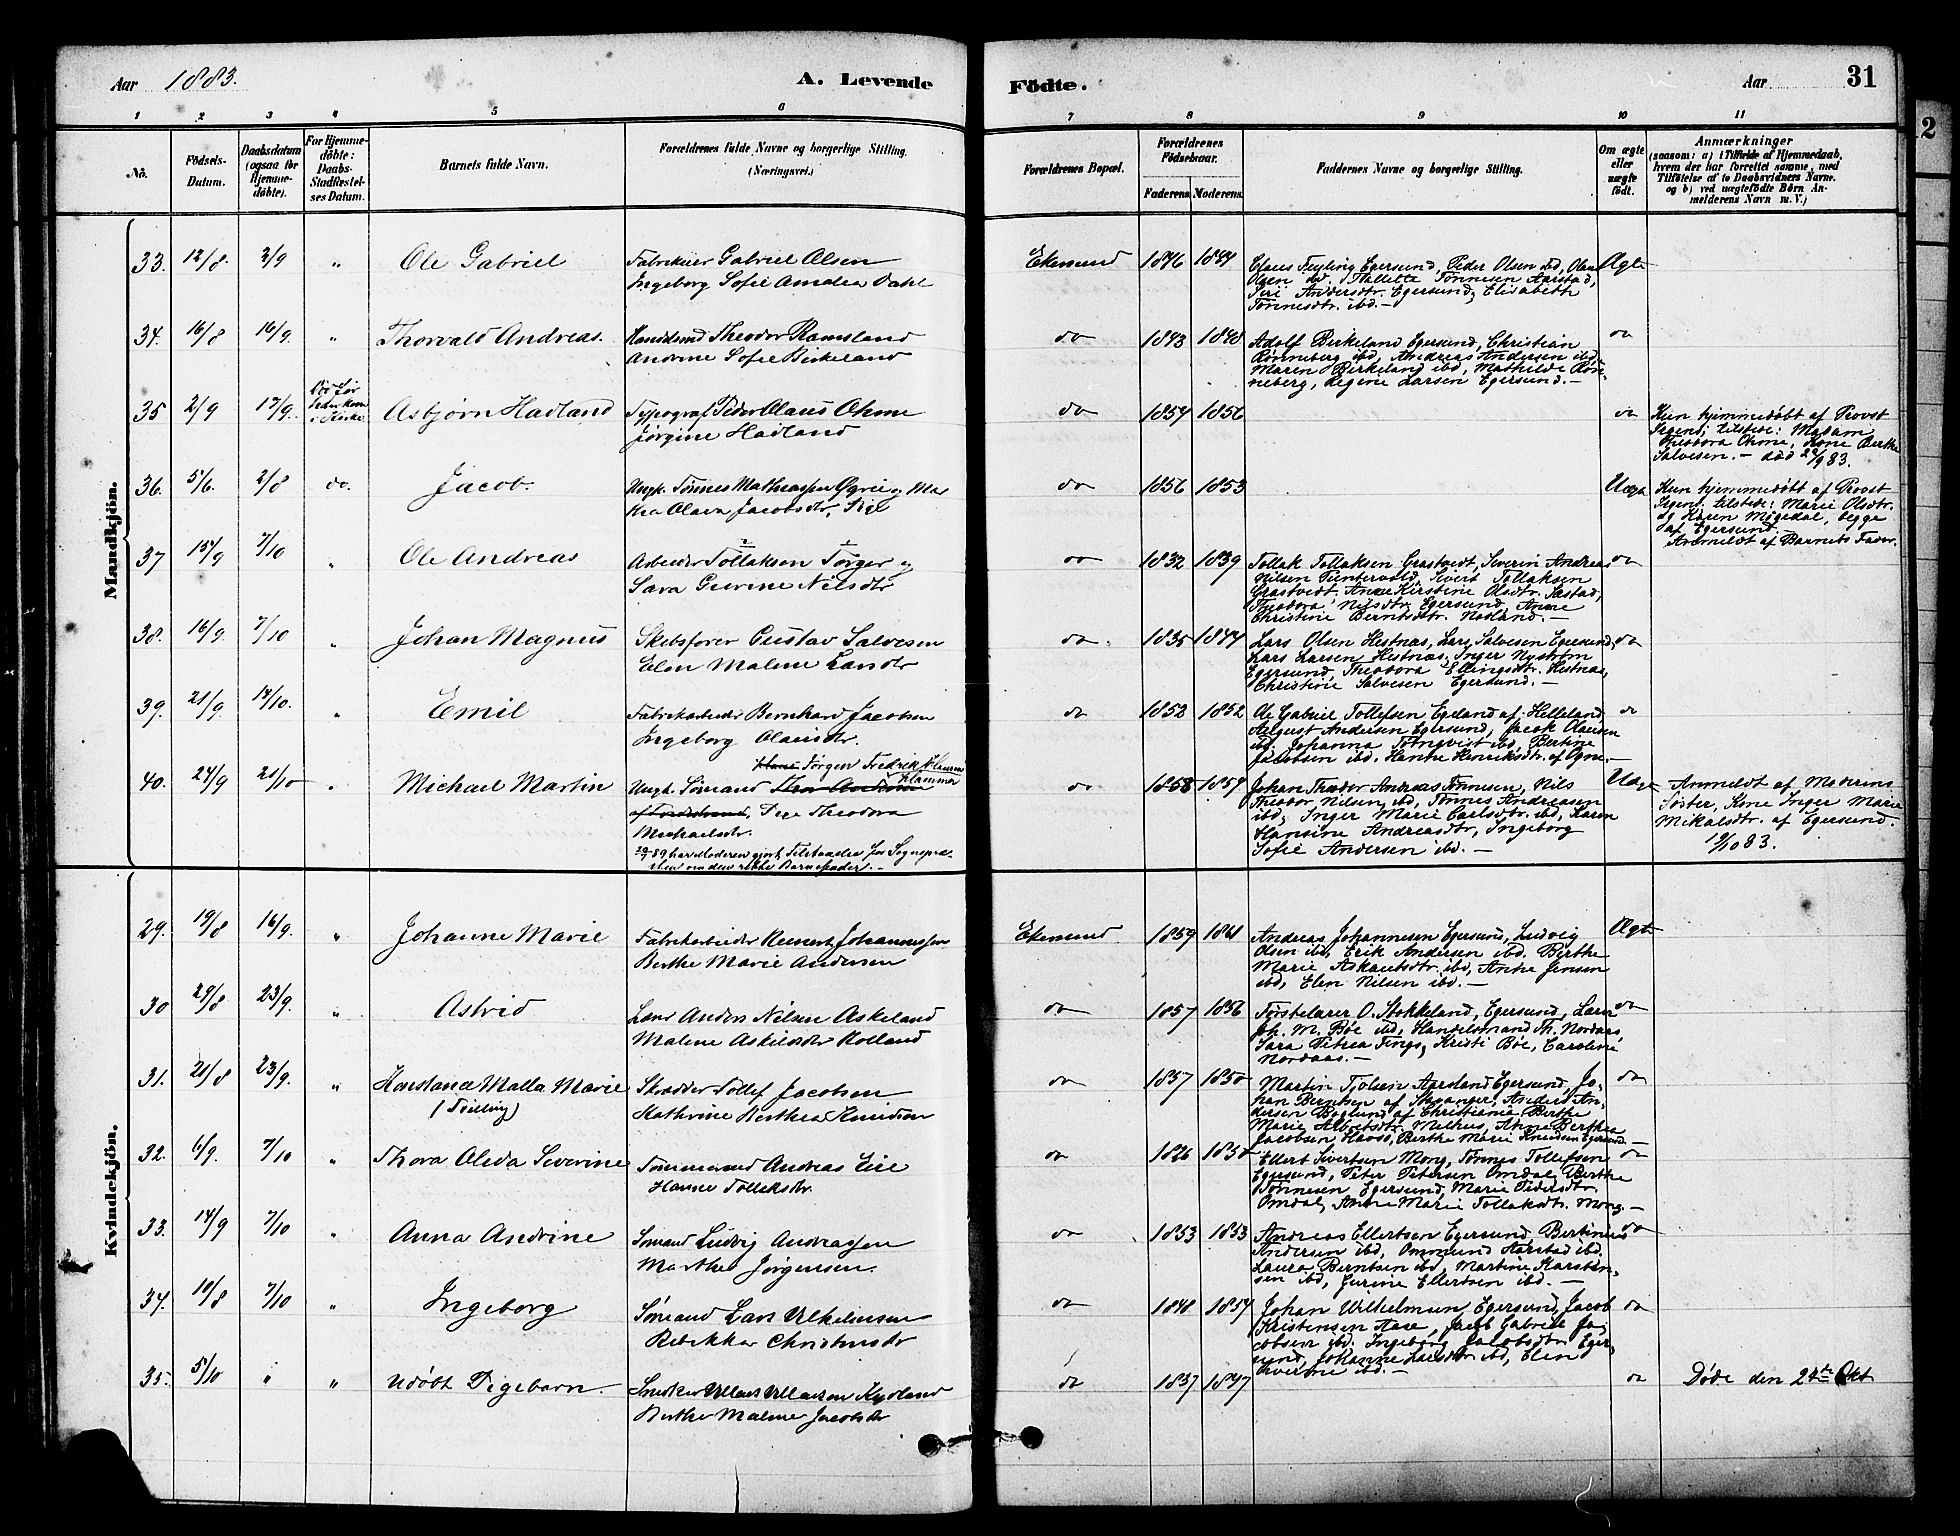 Aar 1883.
A. Levende
Födte.
Aar
31
1 2 3 4 5 6
7 8 9 10 11
No.
Födsels-Datum.
Daabsdatum (ogsaa for Hjemmedöbte).
For Hjemmedöbte: Daabs-Stadfæstelses Datum.
Barnets fulde Navn.
Forældrenes fulde Navne og borgerlige Stilling. (Næringsvei.)
Forældrenes Bopæl.
Forældrenes Födselsaar.
Faderens. Moderens.
Faddernes Navne og borgerlige Stilling.
Om ægte eller uægte födt.
Anmærkninger
(saasom: a) i Tilfælde af Hjemmedaab, hvem der har forrettet samme, med Tilföielse af to Daabsvidners Navne, og b) ved uægtefödte Börn Anmelderens Navn m. V.)
Mandkjön.
33. 12/8. 2/9 " Ole Gabriel
Gabriel Olsen
Ingeborg Sofie Amalia Dahl
Ekersund 1846 1844
Claus Feyling Egersund, Peder Olsen ibd, Olaus
Olsen ibd. Tønnesen Aarstad,
Siri Andersdtr. Egersund, Elisabeth
Tønnesdtr. ibd. —
Ægte
34. 16/8 16/9. " Thorvald Andreas.
Theodor Ramsland
Andrine Sofie Birkeland
do 1843 1848
Adolf Birkeland Egersund, Christian
Rønneberg ibd, Andreas Andersen ibd,
Maren Birkeland ibd, Mathilde Røn-
neberg, Regine Larsen Egersund. —
do
35 2/9 17/9. Asbjørn Hadland
Typograf Peder Olaus Ohme
Jørgine Hadland
do 1854 1856
do
Kun hjemmedøbt af Provst
tilstede: Madam
Theodora Ohme, Kone Berthe
Salvesen. — død 22/9 83.
36. 5/6. 2/8 do. Jacob.
Ungk. Tønnes Mathiassen og Mar
tha Olava Jacobsdtr,
do 1856 1853
Uægte
Kun hjemmedøbt af Provst
tilstede: Marie Olsdtr.
og Karen Migedal, begge
af Egersund.
Anmeldt af Barnets Fader.
37 15/9 7/10 " Ole Andreas
Arbeider Tollaksen Torger og
Sara Gurine Nilsdtr
do 1832 1839
Tollak Tollaksen Grastvedt, Severin Andreas
Nilsen Puntervold, Sivert Tollaksen
Grastvedt, Anne Kirstine Olsdtr. Sæstad,
Theodora Nilsdtr. Egersund, Anne
Christine Berntsdtr. Nodland. —
do
38. 16/9. 7/10 " Johan Magnus
Skibsfører Gustav Salvesen
Elen Malene Larsdtr
do 1835 1844
Lars Olsen Hestnæs, Lars Salvesen Egersund,
Lars Larsen Hestnæs, Inger Nystrøm
Egersund, Theodora Ellingsdtr. Hestnæs,
Christine Salvesen Egersund. —
do
39. 21/9. 14/10. " Emil
Fabrikarbeider Bernhard Jacobsen
Ingeborg Olausdtr.
do 1852 1852
Ole Gabriel Tollefsen Egeland af Helleland,
August Andersen Egersund, Jacob Olausen
ibd. Johanna Tørnqvist ibd, Bertine
Jacobsen ibd, Henrikke Henriksdtr. af Ogne. —
do
40. 24/9 21/10 " Michael Martin
Jørgen Fredrik
Ungk. Sømand
Theodora
Michaelsdtr.
har Moderen gjort Tilstaaelse for Sognepræ-
sten om den rette Barnefader. —
do 1858 1857
Johan Theodor Andreas Tønnesen, Nils
Theodor Nilsen ibd, Tønnes Andreasen
ibd, Inger Marie Carlsdtr. ibd, Karen
Hansine Andreasdtr, Ingeborg
Sofie Andersen ibd. —
Uægte
Anmeldt af Moderens
Søster, Kone Inger Marie
Mikalsdtr. af Egersund.
19/10 83.
Kvindekjön.
29. 19/8 16/9. " Johanne Marie
Fabrikarbeider Reinert Johannessen
Berthe Marie Andersen
Ekersund 1859 1861
Andreas Johannesen Egersund, Ludvig
Olsen ibd, Erik Andersen ibd. Berthe
Marie Askautsdtr. ibd, Anne Jensen
ibd, Elen Nilsen ibd. —
Ægte
30 29/8 23/9. " Astrid
Anders Nilsen Askeland
Malene Askildsdtr Rolland
do 1857 1856
Førstelærer O. Stokkeland, Egersund, Lærer
Joh. M. Bøe ibd, Handelsmand Th. Nordaas,
Sara Petrea Tengs, Kristi Bøe, Caroline
Nordaas. —
do
31. 21/8 23/9. " Konstance Malla Marie
(Tvilling)
Skrædder Tollef Jacobsen
Kathrine Berthea Knudsen
do 1857 1850
Martin Tjølsen Aarstand Egersund, Jo-
han Berntsen af Stavanger, Anders An-
dersen Boglund af Christiania, Berthe
Marie Albretsdtr. Melhus, Anne Berthea
Jacobsen Haass, Berthe Marie Knudsen Egersund —
do
32. 6/9. 7/10 " Thora Oleda Severine
Tømmermand Andreas Eie
Hanne Tollaksdtr.
do 1826 1850
Ellert Sivertsen Mong, Tønnes Tollefsen
Egersund, Peter Petersen Omdal, Berthe
Tønnesen Egersund, Marie Pedersdtr.
Omdal, Anne Marie Tollaksdtr. Mong. —
do
33. 14/9 7/10 " Anna Andrine
Sømand Ludvig Andreassen
Marthe Jørgensen.
do 1853 1853
Andreas Ellertsen Egersund, Bertinius
Andersen ibd, Ommund Aarstad ibd.
Laura Berntsen ibd, Martine Karsten-
sen ibd, Jurine Ellertsen ibd. —
do
34. 10/8 7/10 " Ingeborg
Sømand Lars Vilhelmsen
Rebekka Christensdtr
do 1848 1854
Johan Wilhelmsen Egersund, Jacob
Kristensen Aase, Jacob Gabriel Ja-
cobsen ibd. Ingeborg Jacobsdtr. Eger-
sund, Johanne Larsdtr ibd, Elen
ibd. —
do
35. 5/10 " " Udøbt Pigebarn.
Kydland
Berthe Malene Jacobsdtr
do 1837 1847
do
Døde den 24de Okt